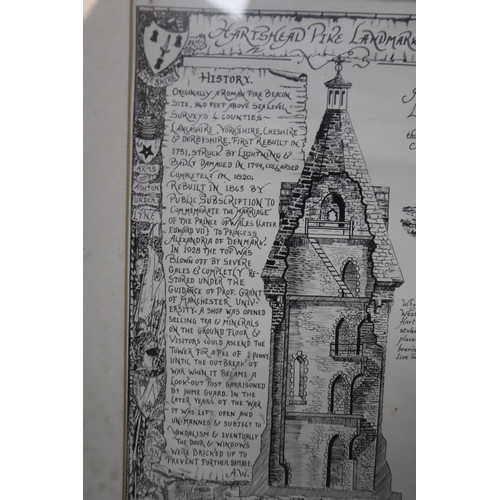 Hartshead Pike Landmark
History.
Originally a Roman fire beacon
site, 940 feet above sea level
surveys 4 counties~
Lancashire, Yorkshire, Cheshire
& Derbyshire, first rebuilt in
1751, struck by lightning &
badly damaged in 1794, collapsed
completely in 1820.
Rebuilt in 1863 by
public subscription to
commemorate the marriage
of the Prince of Wales (later
Edward VII) to Princess
Alexandria of Denmark.
In 1928 the top was
blown off by severe
gales & completly re-
stored under the
guidance of Prof. Grant
of Manchester Uni-
versity. A shop was opened
selling tea & minerals
on the ground floor &
visitors could ascend the
tower for a fee of 1 penny,
until the outbreak of
war when it became a
look-out post garrisoned
by Home Guard. In the
later years of the war
it was left open and
un-manned & subject to
vandalism & eventually
the door & windows
were bricked up to
prevent further damage.
A.W.
Arms
Cheshire
Arms
of
Ashton
under
Lyne